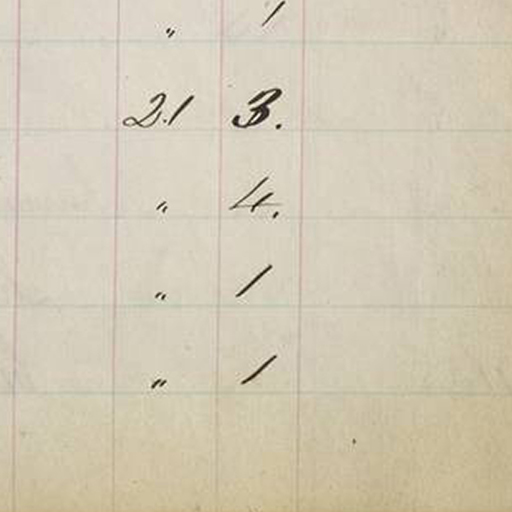 〃 1
21 3.
〃 4.
〃 1
〃 1